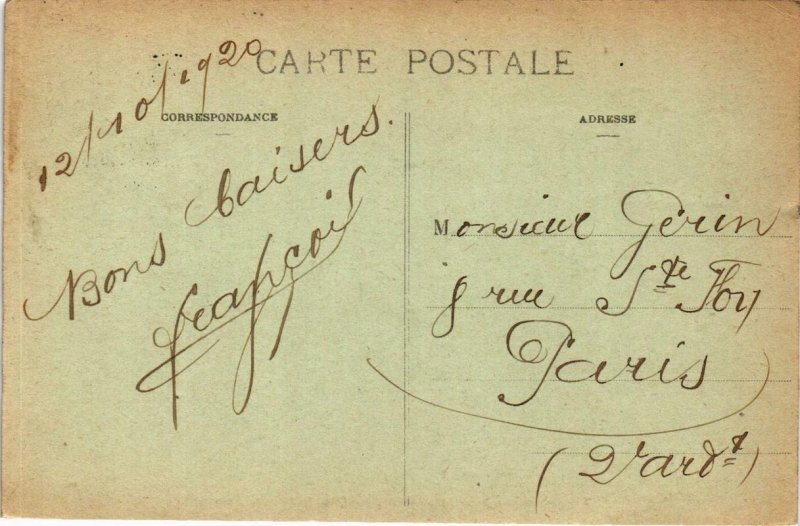 CARTE POSTALE
CORRESPONDANCE
12/10/1920
Bons baisers.
François
ADRESSE
Monsieur Gérin
8 rue Ste Foy
Paris
(2e ardt)